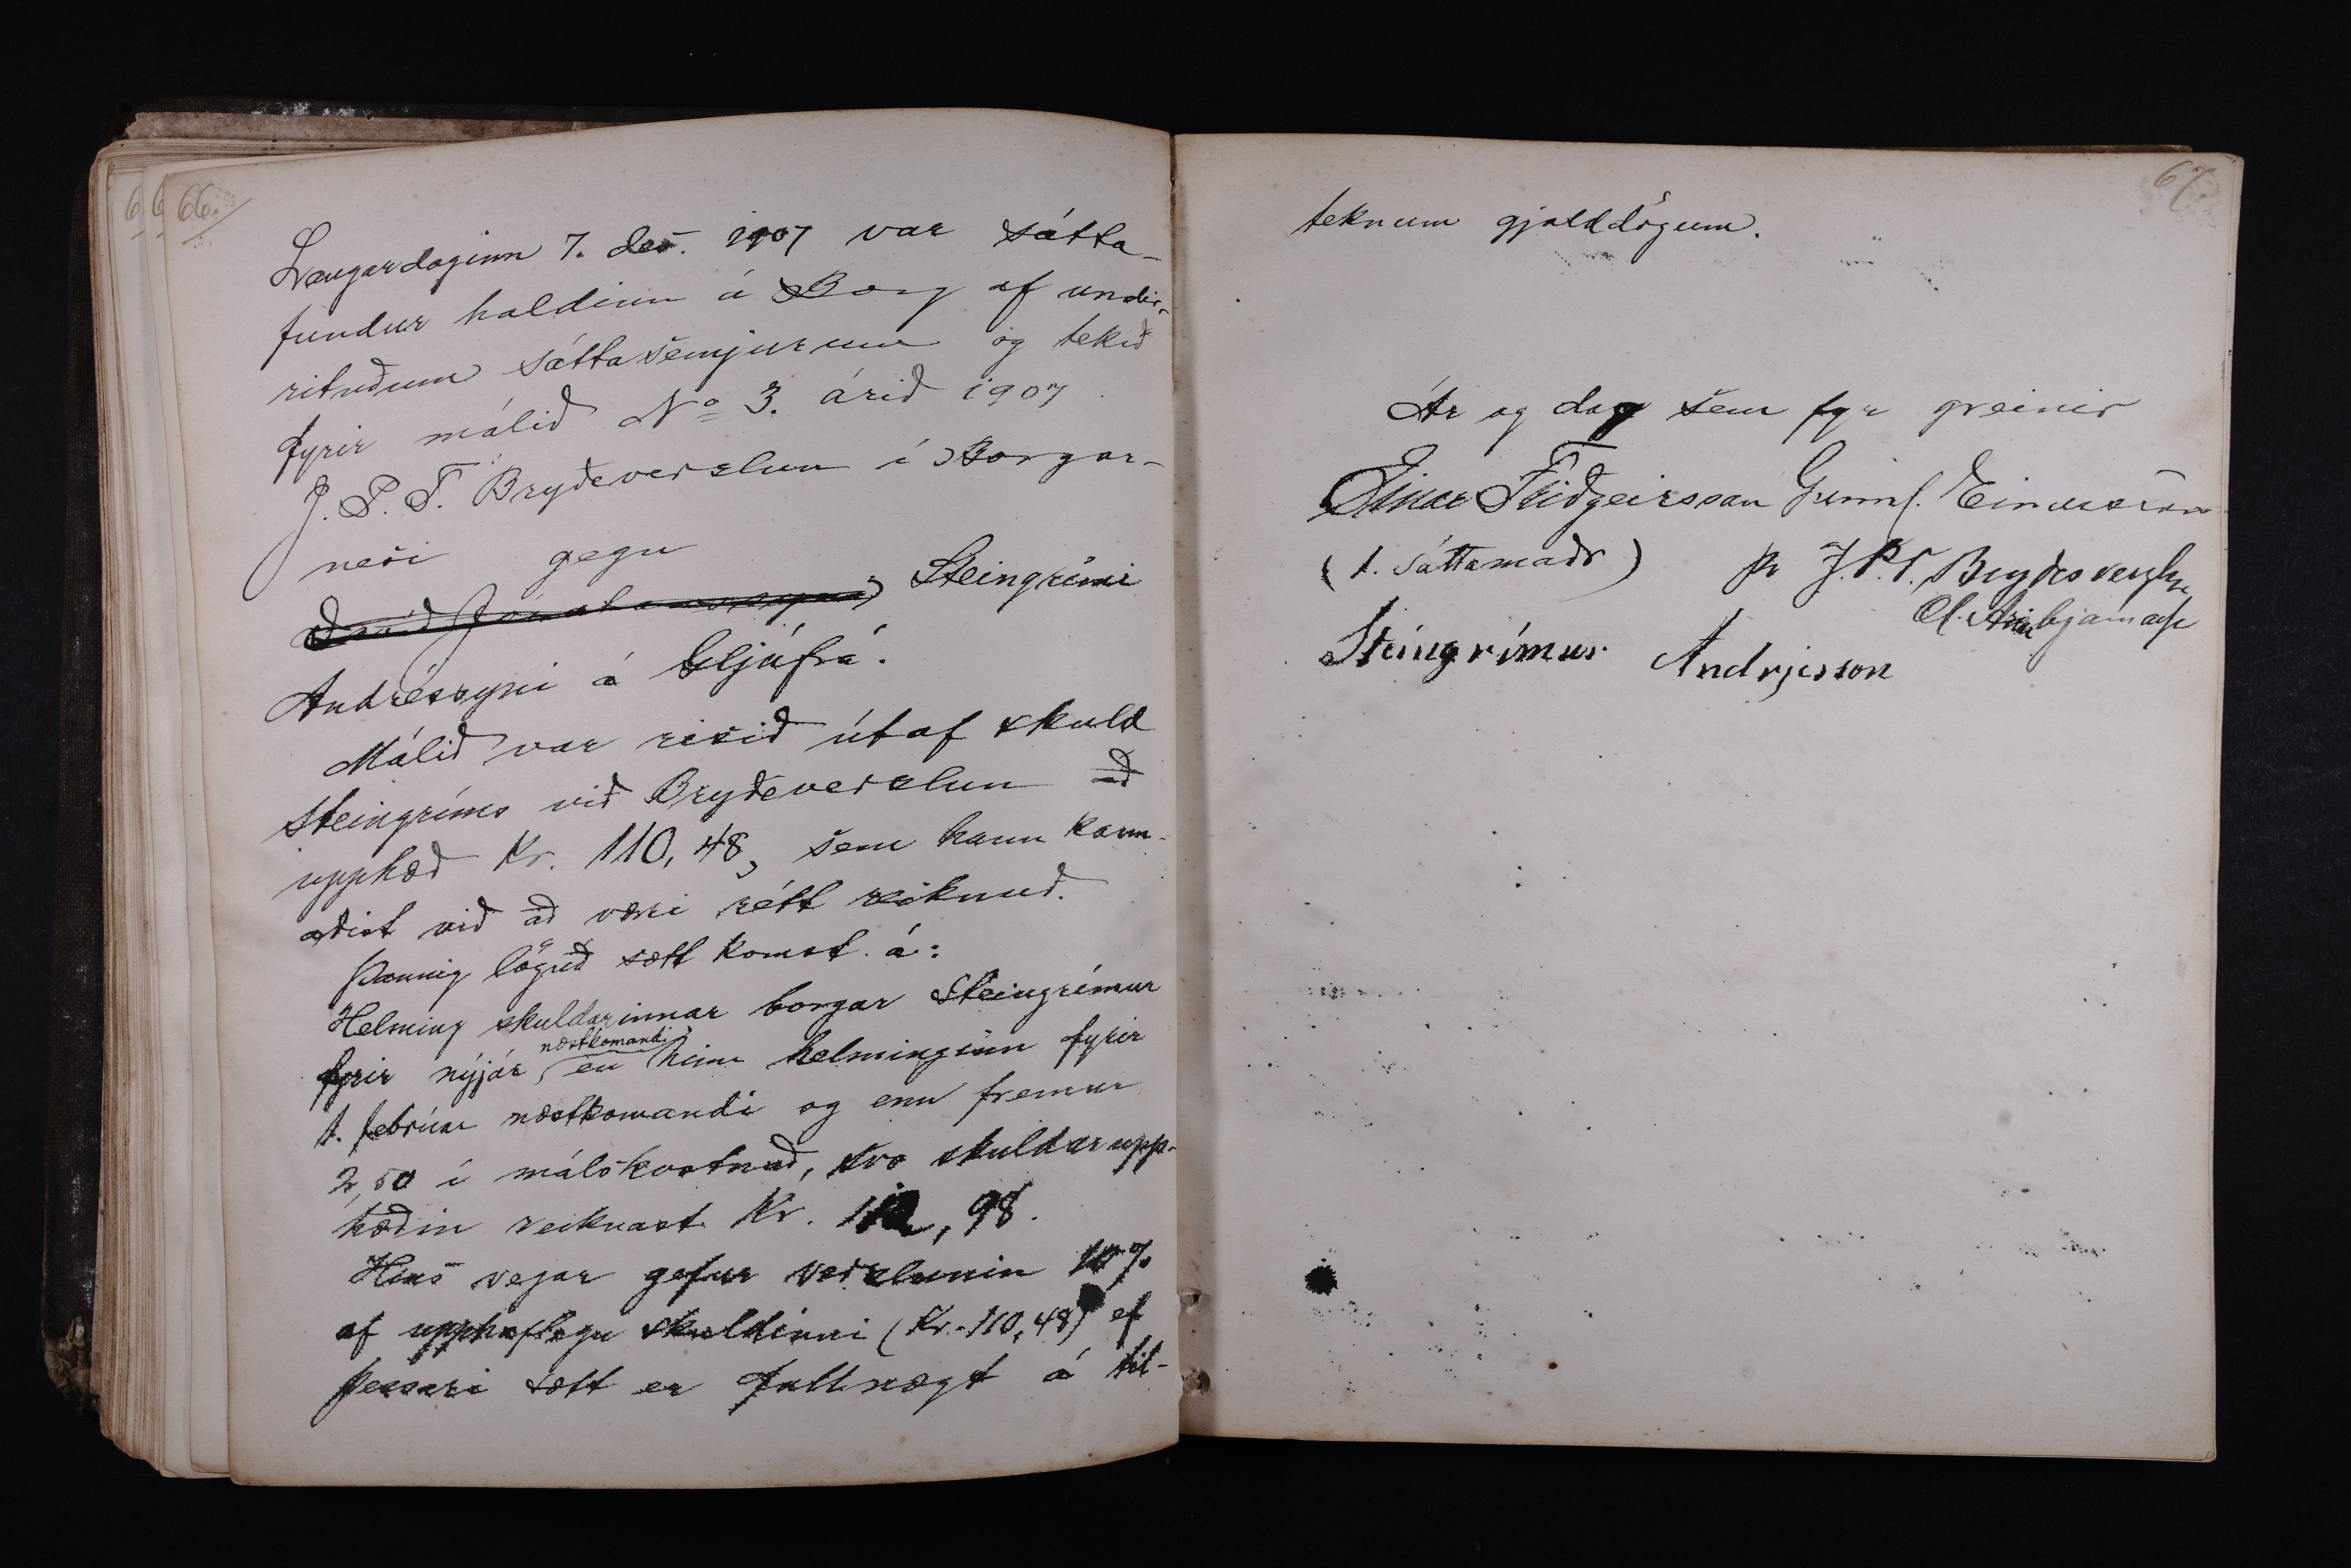 66.
Laugardaginn 7. des. 1907 var sátta-
fundur haldinn á Borg af undir-
rituðum sáttasemjurum og tekið
fyrir málið No 3. árið 1907
J. P. T. Brydeverslun í Borgar-
nesi gegn
Davíð Jónatanssyni, Steingrími
Andréssyni á Gljúfrá.
Málið var risið útaf skuld
Steingríms við Brydeverslun að
upphæð Kr. 110,48, sem hann kann-
aðist við að væri rétt reiknuð.
Þannig löguð sætt komst á:
Helming skuldarinnar borgar Steingrímur
fyrir nýjár næstkomandi, en hinn helminginn fyrir
1. febrúar næstkomandi og enn fremur
2,50 í málskostnað, svo skuldarupp-
hæðin reiknast Kr. 112,98.
Hins vegar gefur verslunin 10%
af upphaflegu skuldinni (Kr. 110,48) ef
þessari sætt er fullnægt á til-
67.
teknum gjalddögum.
Ár og dag sem fyr greinir
Einar Friðgeirsson Gunnl. Einarsson
(1. sáttamaðr) pr J.P.T. Brydes verzlun
Steingrímur Andrjesson